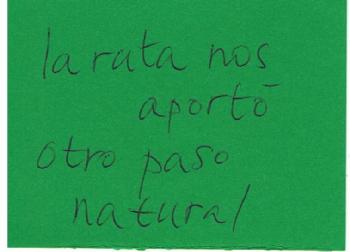 la ruta nos
aportó
otro paso
natural